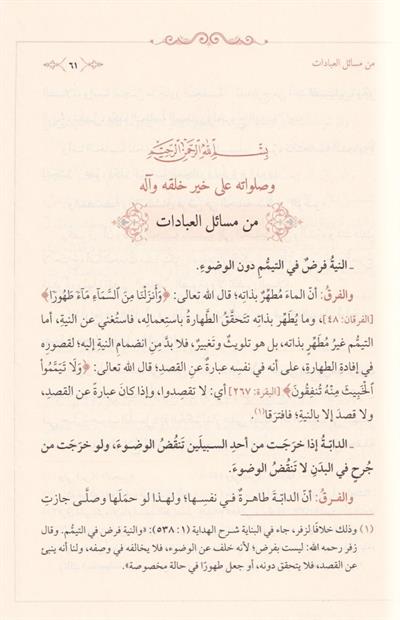 من مسائل العبادات
٦١
بِسْمِ اللهِ الرَّحْمٰنِ الرَّحِيْمِ
وصلواته على خير خلقه وآله
من مسائل العبادات
ـ النيةُ فرضٌ في التيمُّم دون الوضوءِ.
والفرقُ: أنَّ الماءَ مُطهِّرٌ بذاتِه؛ قال الله تعالى: ﴿وَأَنزَلْنَا مِنَ السَّمَآءِ مَآءً طَهُورًا﴾
[الفرقان: ٤٨]، وما يُطهِّر بذاته تَتحقَّقُ الطَّهارةُ باستِعمالِه، فاستُغني عن النيةِ، أما
التيمُّم غيرُ مُطهِّرٍ بذاته، بل هو تلويثٌ وتَغبيرٌ، فلا بدَّ مِن انضمامِ النيةِ إليه؛ لقصورِه
في إفادةِ الطهارةِ، على أنه في نفسِه عبارةٌ عن القصدِ؛ قال الله تعالى: ﴿وَلَا تَيَمَّمُوا
الْخَبِيثَ مِنْهُ تُنفِقُونَ﴾ [البقرة: ٢٦٧] أي: لا تقصِدوا، وإذا كانَ عبارةً عن القصدِ،
ولا قصدَ إلا بالنيةِ؛ فافترَقا(١).
ـ الدابَّةُ إذا خرَجَت من أحدِ السبيلَين تَنقُضُ الوضوءَ، ولو خرَجَت من
جُرحٍ في البدَنِ لا تَنقُضُ الوضوءَ.
والفرقُ: أنَّ الدابّةَ طاهرةٌ في نفسِها؛ ولهذا لو حمَلَها وصلَّى جازت
(١) وذلك خلافًا لزفر، جاء في البناية شرح الهداية (١: ٥٣٨): «والنية فرض في التيمُّم. وقال
زفر رحمه الله: ليست بفرض؛ لأنه خلف عن الوضوء، فلا يخالفه في وصفه، ولنا أنه ينبئ
عن القصد، فلا يتحقق دونه، أو جعل طهورًا في حالة مخصوصة».